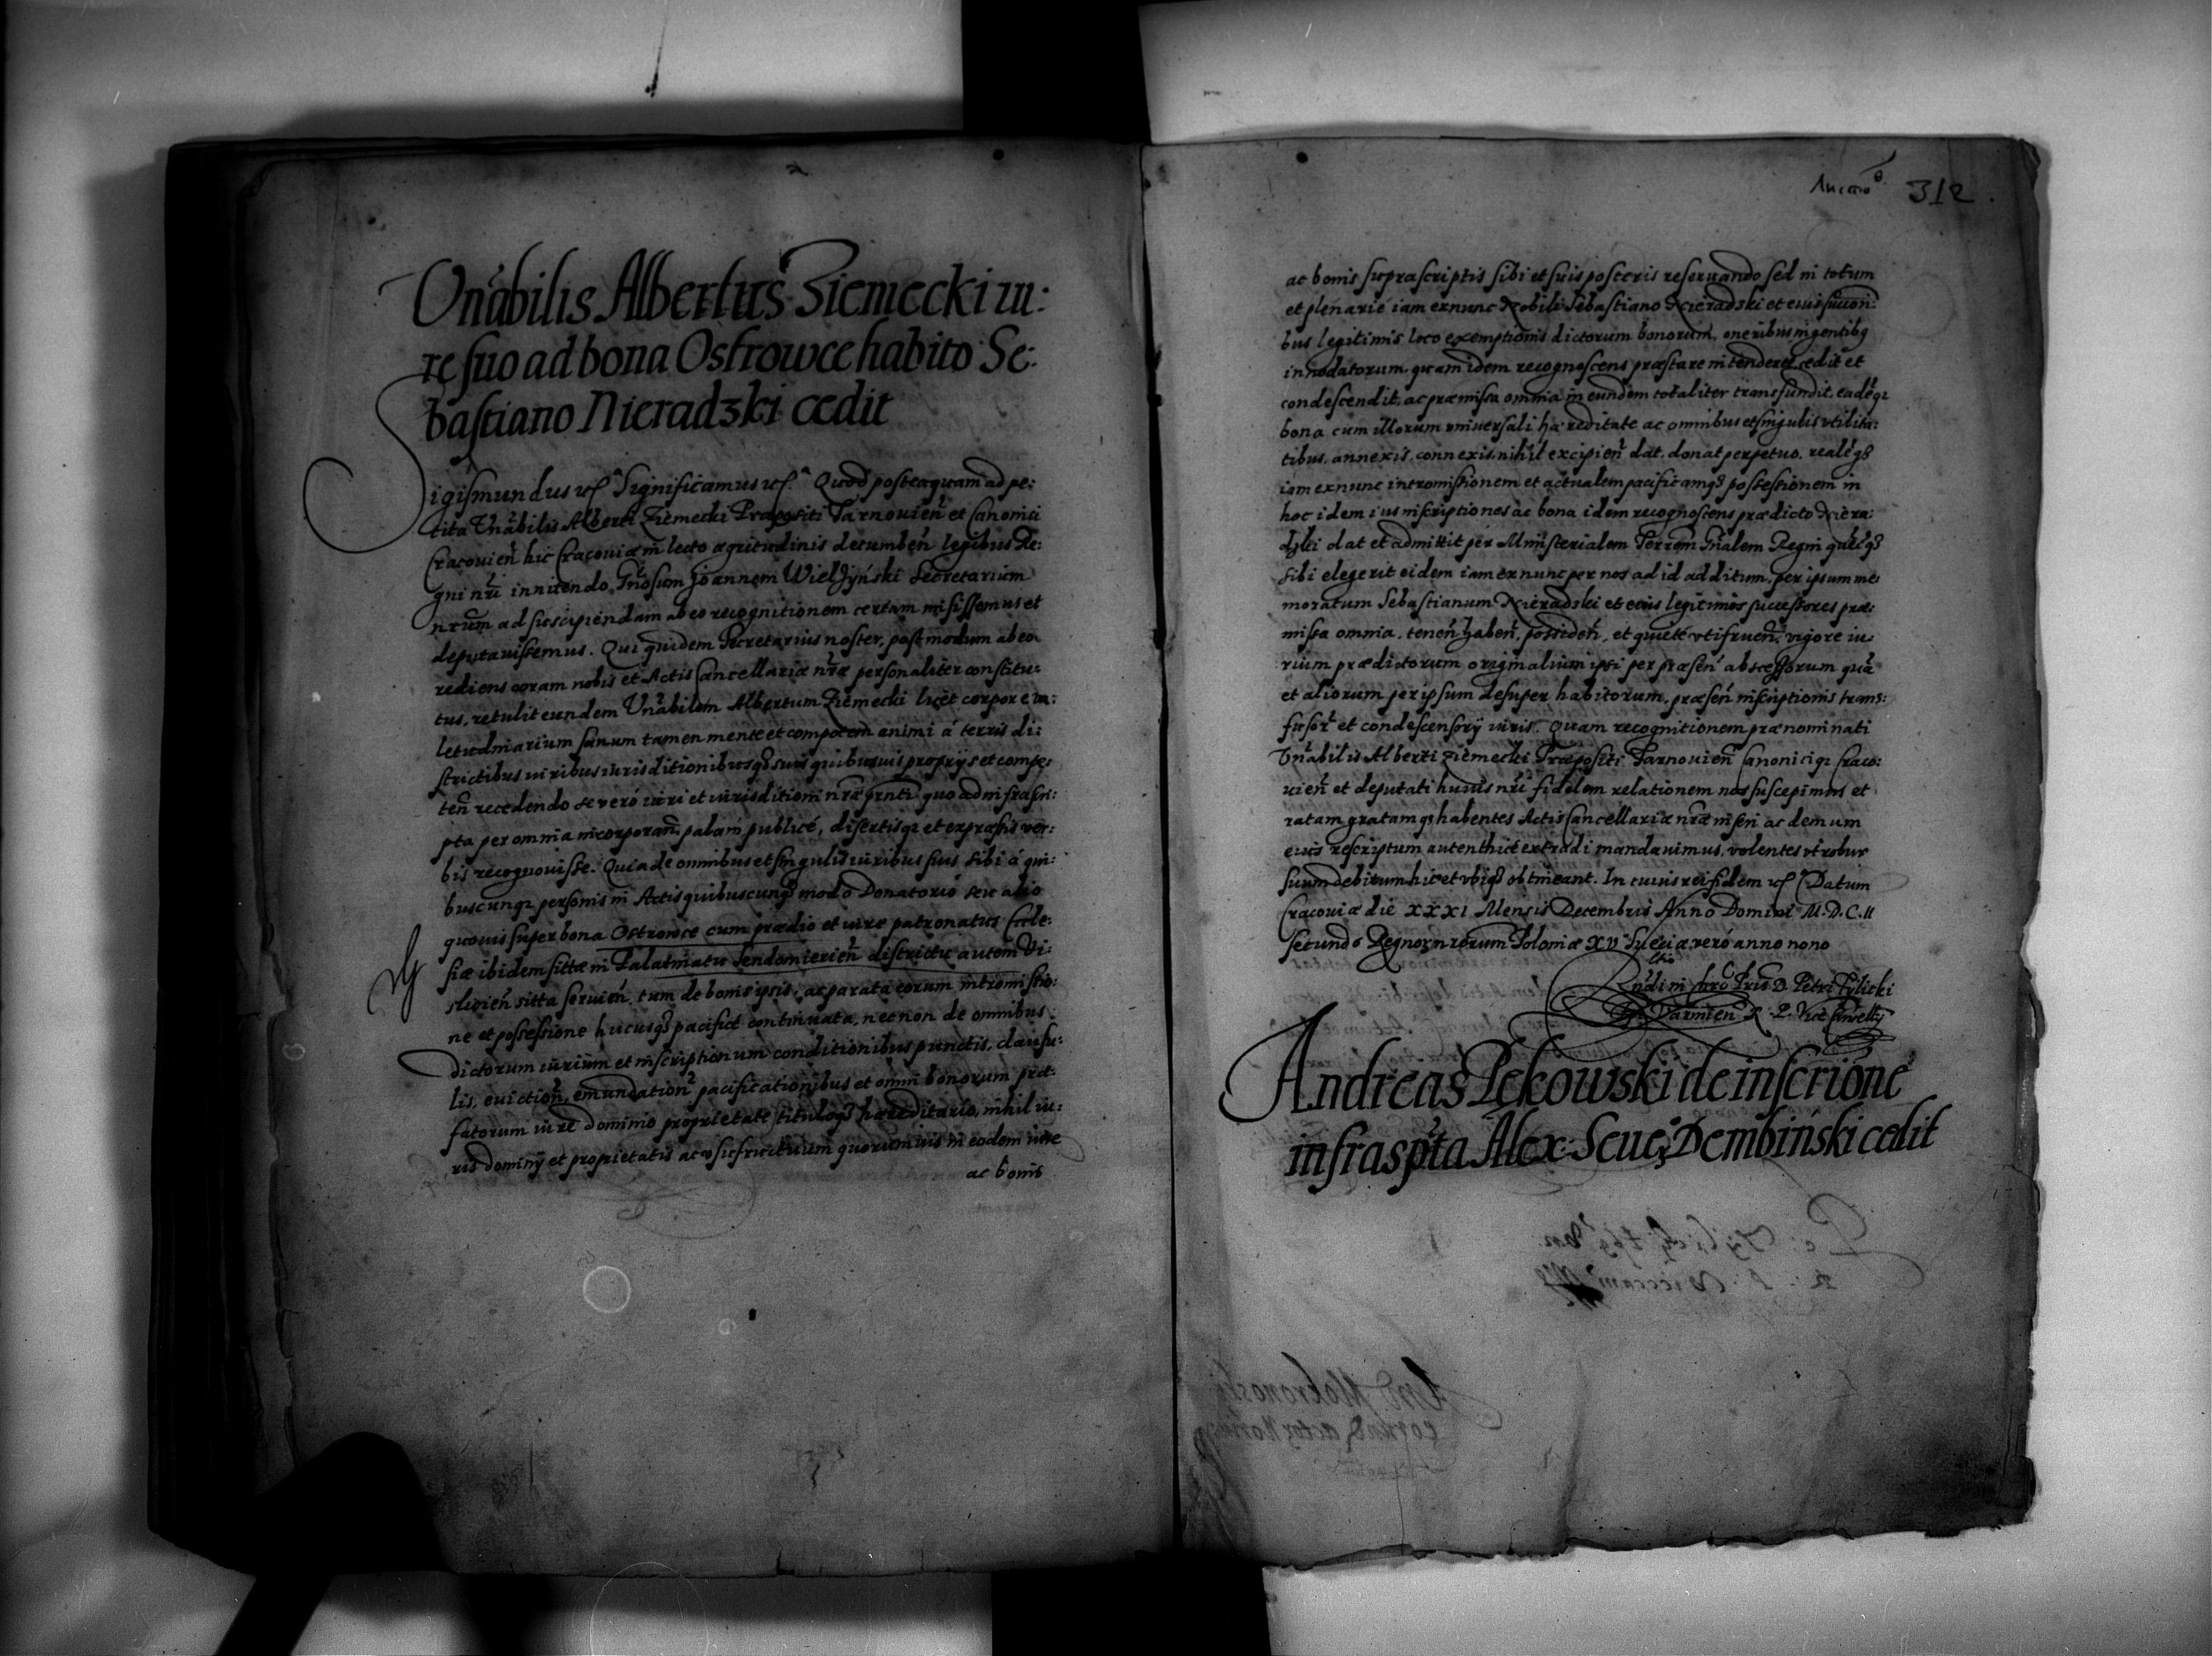 Vnãbilis Albertus Ziemecki iu:
re suo ad bona Ostrowce habito Se:
bastiano Nieradzki cedit
Sigismundus etc̃ Significamus etc̃. Quod posteaquam ad pe:
tita Vnãbilis Alberti Ziemecki Præpositi Tarnovień et Canonici
Cracovień hic Cracoviæ in lecto ægritudinis decumbeń legibus Re:
gni nr̃i innitendo, Gñosum Joannem Wielżyński Secretarium
nrũm ad suscipiendam ab eo recognitionem certam misissemus et
deputavissemus. Qui quidem Secretarius noster, postmodum ab eo
rediens coram nobis et Actis Cancellariæ nr̃æ personaliter constitu:
tus, retulit eundem Vnãbilem Albertum Ziemecki licèt corpore va:
letudinarium sanum tamen mente et compotem animi à terris di:
strictibus iuribus iurisditionibusq3 suis quibusuis proprÿs et compe:
teń recedendo se verò iuri et iurisditioni nr̃æ prñti quo ad infrascri:
pta per omnia incorporań, palam publicè, disertisq3 et expressis ver:
bis recognovisse. Quia de omnibus et singulis iuribus suis sibi à qui:
buscunq3 personis in Actis quibuscunq3 modo Donatorio seu alio
quovis super bona Ostrowce cum prædio et iure patronatus Eccle:
siæ ibidem sittæ in Palatinatu Sendomirień districtu autem Vi:
slicień sitta servień, tum de bonis ipsis, ac parata eorum intromissio:
ne et possessione hucusq3 pacificè continuata, necnon de omnibus
dictorum iurium et inscriptionum conditionibus punctis, clausu:
lis, eviction̄, emundation̄ pacificationibus et omni bonorum præ:
fatorum iure dominio proprietate tituloq3 hæreditario, nihil iu:
ris dominÿ et proprietatis ac vsufructuum quorumvis in eodem iure
ac bonis
312
ac bonis suprascriptis sibi et suis posteris reservando sed in totum
et plenariè iam exnunc Nobili Sebastiano Nieradzki et eius succori:
bus legitimis loco exemptionis dictorum bonorum, oneribus ingentibq
innodatorum, quam idem recognoscens præstare intenderet, cedit et
condescendit, ac præmissa omnia in eundem totaliter transfundit, eadẽq3
bona cum illorum vniversali hæreditate ac omnibus et singulis vtilita:
tibus, annexis, connexis, nihil excipień dat, donat perpetuo, realẽq3
iam exnunc intromissionem et actualem pacificamq3 possessionem in
hoc idem ius inscriptiones ac bona idem recognoscens prædicto Niera:
dzki dat et admittit per Ministerialem Terrẽm Gñalem Regni quẽcq3
sibi elegerit eidem iam exnunc per nos ad id additum, per ipsum me:
moratum Sebastianum Nieradzki et eius legitimos successores præ:
missa omnia, teneń habeń, possideń, et quietè vtifrueń, vigore iu:
rium prædictorum originalium ipsi per præseń abscessorum quã
et aliorum per ipsum desuper habitorum, præseń inscriptionis trans:
fusor̃ et condescensorÿ iuris. Quam recognitionem prænominati
Vnãbilis Alberti Ziemecki Præpositi Tarnovień Canonici q3 Craco:
vień et deputati huius nr̃i fidelem relationem nos suscepimus et
ratam gratamq3 habentes Actis Cancellariæ nr̃æ inseri ac demum
eius rescriptum autenthicè extradi mandavimus, volentes vt robur
suum debitum hic et vbiq3 obtineant. In cuius rei fidem etc̃ Datum
Cracoviæ die XXXI Mensis Decembris Anno Domini M.D.C.II
secundo Regnorum nr̃orum Poloniæ XV Sueciæ verò anno nono
Rñdi in Chrõ Pris D. Petri Tylicki
Varmień R. P. Vice Cancellÿ
Andreas Pękowski de inscrione
infraspt̃a Alex: Seue: Dembiński cedit